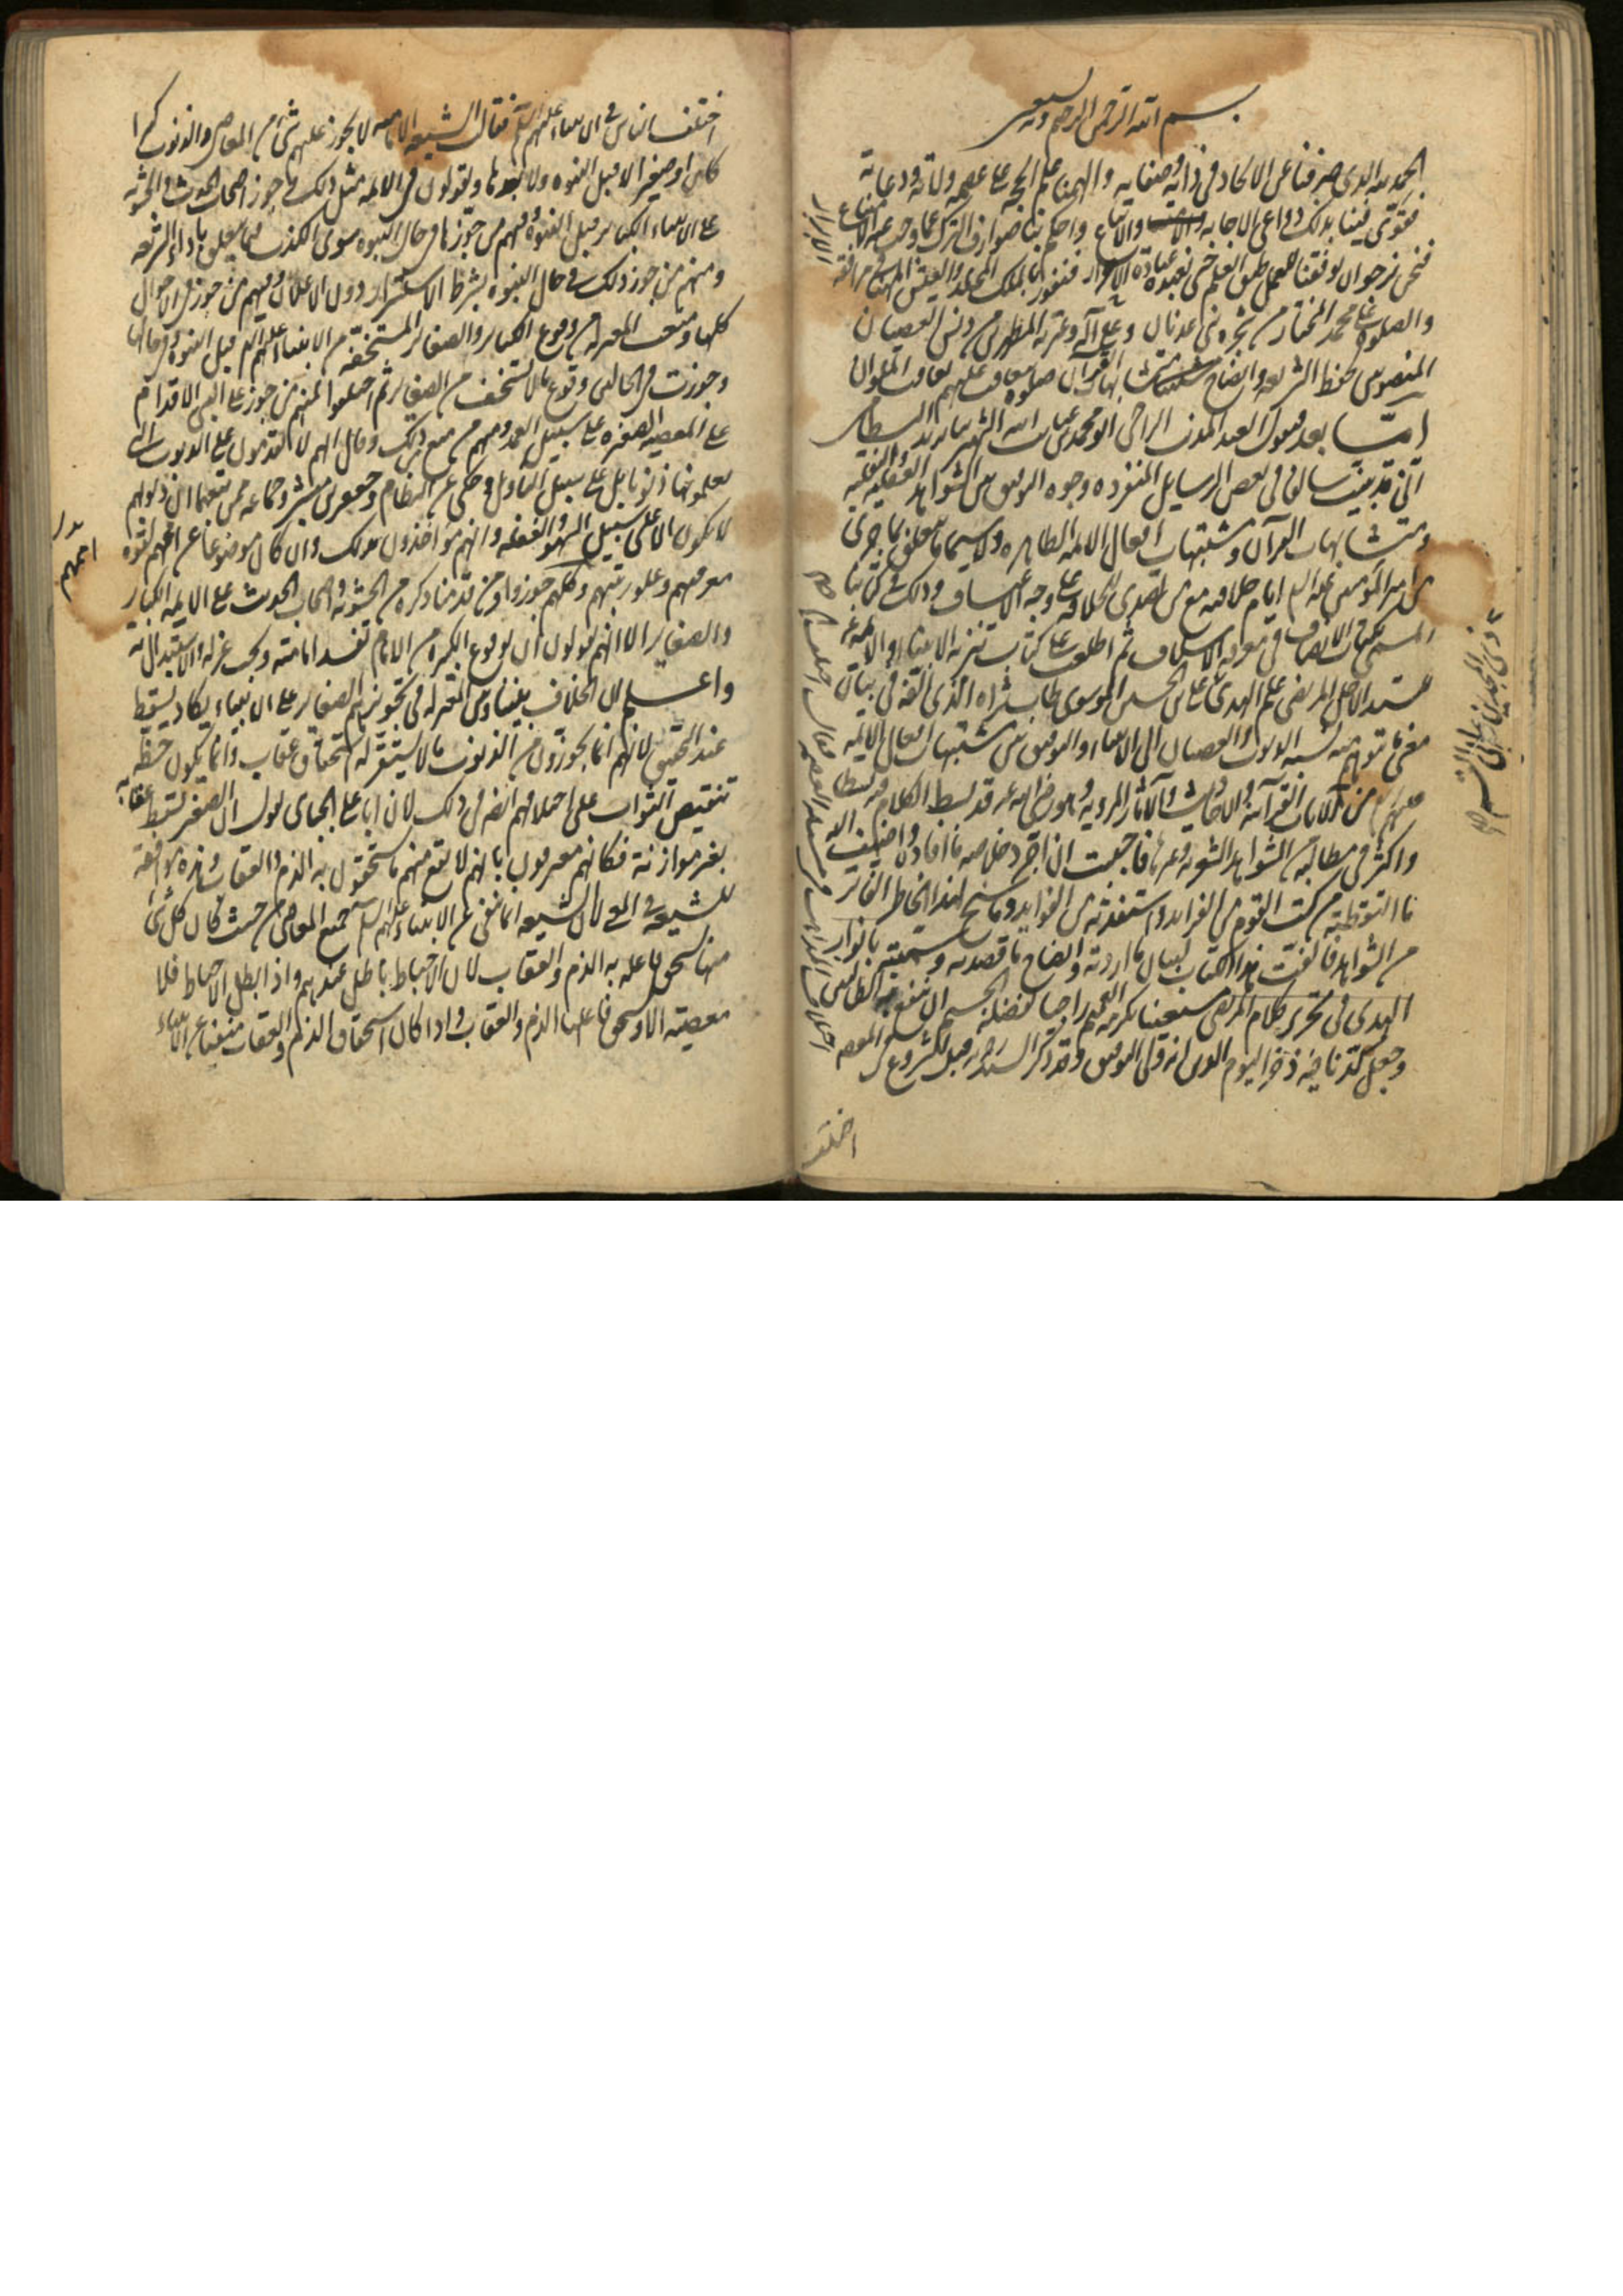 بسم الله الرحمن الرحيم وبه نستعين
الحمد لله الذي صرفنا عن الالحاد في ذاته وصفاته والهمنا علم الحجة على عصمة ولاته ودعاته
فقوى فينا بذلك دواعي الاجابة والاتباع واحكم بنا صوارف الترك عما وجب عنه الامتناع
فنحن نرجو ان يوفقنا للعمل طبق العلم حتى نعبده عبادة الابرار فنفوز بالملك المخلد والعيش المهنا مرافقة
الابرار
والصلوة على محمد المختار من شجرة بني عدنان وعلى آله وعترته المطهرين من دنس العصيان
المنصوبين لحفظ الشريعة وايضاح متشابهات القرآن صلوة تتعاقب عليهم تعاقب الملوان
اما بعد فيقول العبد المذنب الراجي ابو محمد بن عناية الله الشهير ببايزيد البسطامي
اني قد بينت سالفا في بعض الرسايل المنفردة وجوه التوفيق بين الشواهد العقلية والنقلية
ومتشابهات القرآن ومشتبهات افعال الائمة الطاهرة ولا سيما ما يتعلق بما جرى
من امير المؤمنين عليه السلم ايام خلافته مع من تصدى للخلافة على وجه الاعتساف وذلك في كتابنا
المسمى بميزان الانصاف في معرفة الاسلاف ثم اطلعت على كتاب تنزيه الانبياء والائمة
للسيد الاجل المرتضى علم الهدى علي بن الحسين الموسوي طاب ثراه الذي الفه في بيان
مغزى ما يتوهم منه نسبة الذنوب والعصيان الى الانبياء والتوفيق بين مشتبهات افعال الائمة
عليهم السلم من الآيات القرآنية والاحاديث والآثار المروية وهو رضي الله عنه قد بسط الكلام فيه بسطا
واكثر في مطالبه من الشواهد الشعرية وغيرها فاحببت ان اخرج خلاصة ما افاده واضيف اليه
ما التقطته من كتب القوم من الفرايد واستفدته من الفوايد وما سنح لهذا الخاطر الفاتر
من الشواهد فالفت هذا الكتاب لبيان ما اردته وايضاح ما قصدته وسميته بانوار
الهدى في تحرير كلام المرتضى مستعينا بكرمه العميم راجيا لفضله الجسيم ان ينفع به الطالبين
وجعل كدنا فيه ذخرا ليوم الدين انه ولي التوفيق وقد ذكر السيد رحمه الله قبل الشروع في المقصد
اختلف
اختلف الناس في الانبياء عليهم السلم فقالت الشيعة الامامية لا يجوز عليهم شئ من المعاصي والذنوب كبيرا
كان او صغيرا لا قبل النبوة ولا بعدها ويقولون في الائمة مثل ذلك وجوز اصحاب الحديث والحشوية
على الانبياء الكباير قبل النبوة ومنهم من جوزها في حال النبوة سوى الكذب فيما يتعلق باداء الشريعة
ومنهم من جوز ذلك في حال النبوة بشرط الاستسرار دون الاعلان ومنهم من جوز على الاحوال
كلها ومنعت المعتزلة من وقوع الكباير والصغاير المستخفة من الانبياء عليهم السلم قبل النبوة وفي حالها
وجوزت في الحالين وقوع ما لا يستخف من الصغاير ثم اختلفوا فمنهم من جوز على النبي الاقدام
على المعصية الصغيرة على سبيل العمد ومنهم من منع ذلك وقال انهم لا يقدمون على الذنوب التي
يعلمونها ذنوبا بل على سبيل التاويل وحكي عن النظام وجعفر بن مبشر وجماعة ممن تبعهما ان ذنوبهم
لا تكون الا على سبيل السهو والغفلة وانهم مواخذون بذلك وان كان موضوعا عن اممهم لقوة
معرفتهم وعلو رتبتهم وكلهم جوزوا ومن قدمنا ذكره من الحشوية واصحاب الحديث على الائمة الكباير
والصغاير الا انهم يقولون ان بوقوع الكبيرة من الامام تفسد امامته ويجب عزله والاستبدال به
واعلم ان الخلاف بيننا وبين المعتزلة في تجويزهم الصغاير على الانبياء يكاد يسقط
عند التحقيق لانهم انما يجوزون من الذنوب ما لا يستقر له استحقاق عقاب وانما يكون حظه
تنقيص الثواب على اختلافهم ايضا في ذلك لان ابا علي الجبائي يقول ان الصغير يسقط عقابه
بغير موازنة فكانهم معترفون بانهم لا يقع منهم ما يستحقون به الذم والعقاب وهذه موافقة
للشيعة في المعنى لان الشيعة انما تنفي عن الانبياء عليهم السلم جميع المعاصي من حيث كان كل شئ
منها يستحق فاعله به الذم والعقاب لان الاحباط باطل عندهم واذا بطل الاحباط فلا
معصية الا ويستحق فاعلها الذم والعقاب واذا كان استحقاق الذم والعقاب منفيا عن الانبياء